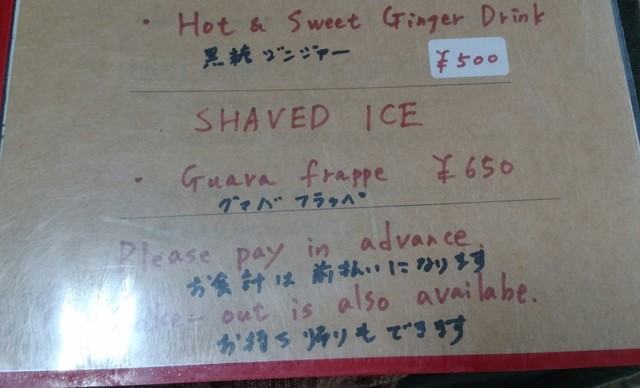 ・ Hot & Sweet Ginger Drink
黒糖ジンジャー
¥500
SHAVED ICE
・ Guava frappe ¥650
グァバ フラッペ
Please pay in advance.
お会計は前払いになります
Take-out is also availabe.
お持ち帰りもできます